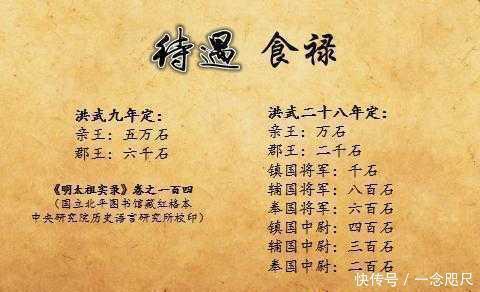 待遇 食禄
洪武九年定：
亲王：五万石
郡王：六千石
《明太祖实录》卷之一百四
（国立北平图书馆藏红格本
中央研究院历史语言研究所校印）
洪武二十八年定：
亲王：万石
郡王：二千石
镇国将军：千石
辅国将军：八百石
奉国将军：六百石
镇国中尉：四百石
辅国中尉：三百石
奉国中尉：二百石
快传号 / 一念咫尺